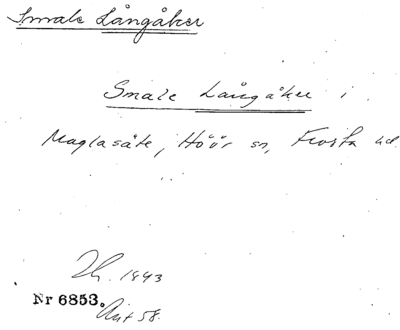 Smale Långåker
Smale Långåker i
Maglasäte, Höör sn, Frosta hd.
1943
Nr 6853.